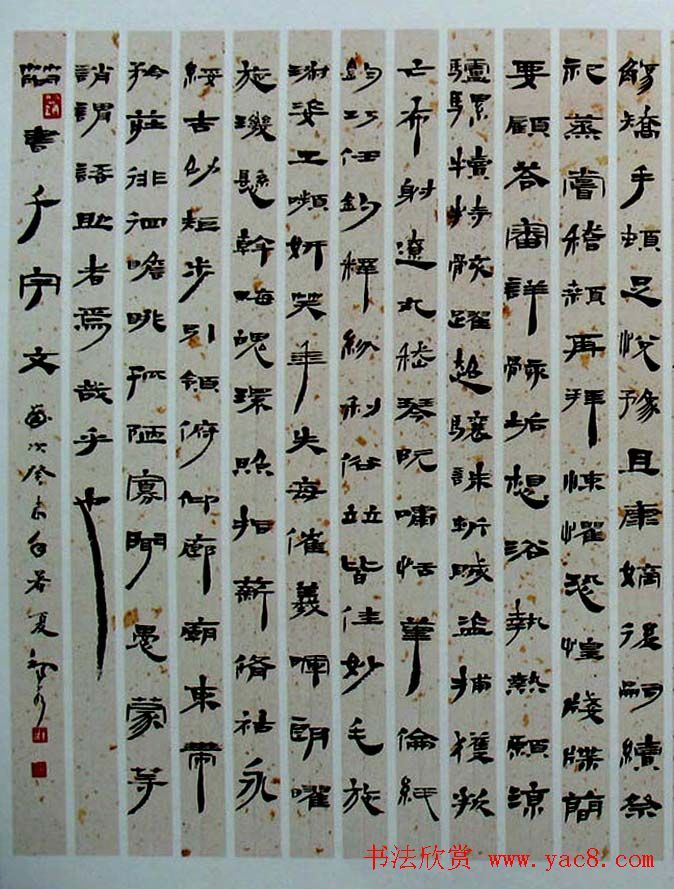 觴矯手頓足悅豫且康嫡後嗣續祭
祀蒸嘗稽顙再拜悚懼恐惶牋牒簡
要顧答審詳骸垢想浴執熱願涼
驢騾犢特駭躍超驤誅斬賊盜捕獲叛
亡布射遼丸嵇琴阮嘯恬筆倫紙
鈞巧任釣釋紛利俗竝皆佳妙毛施
淑姿工嚬妍笑年矢每催羲暉朗曜
旋璣懸斡晦魄環照指薪脩祜永
綏吉劭矩步引領俯仰廊廟束帶
矜莊徘徊瞻眺孤陋寡聞愚蒙等
誚謂語助者焉哉乎也
簡書千字文 歲次癸未 夏
书法欣赏 www.yac8.com